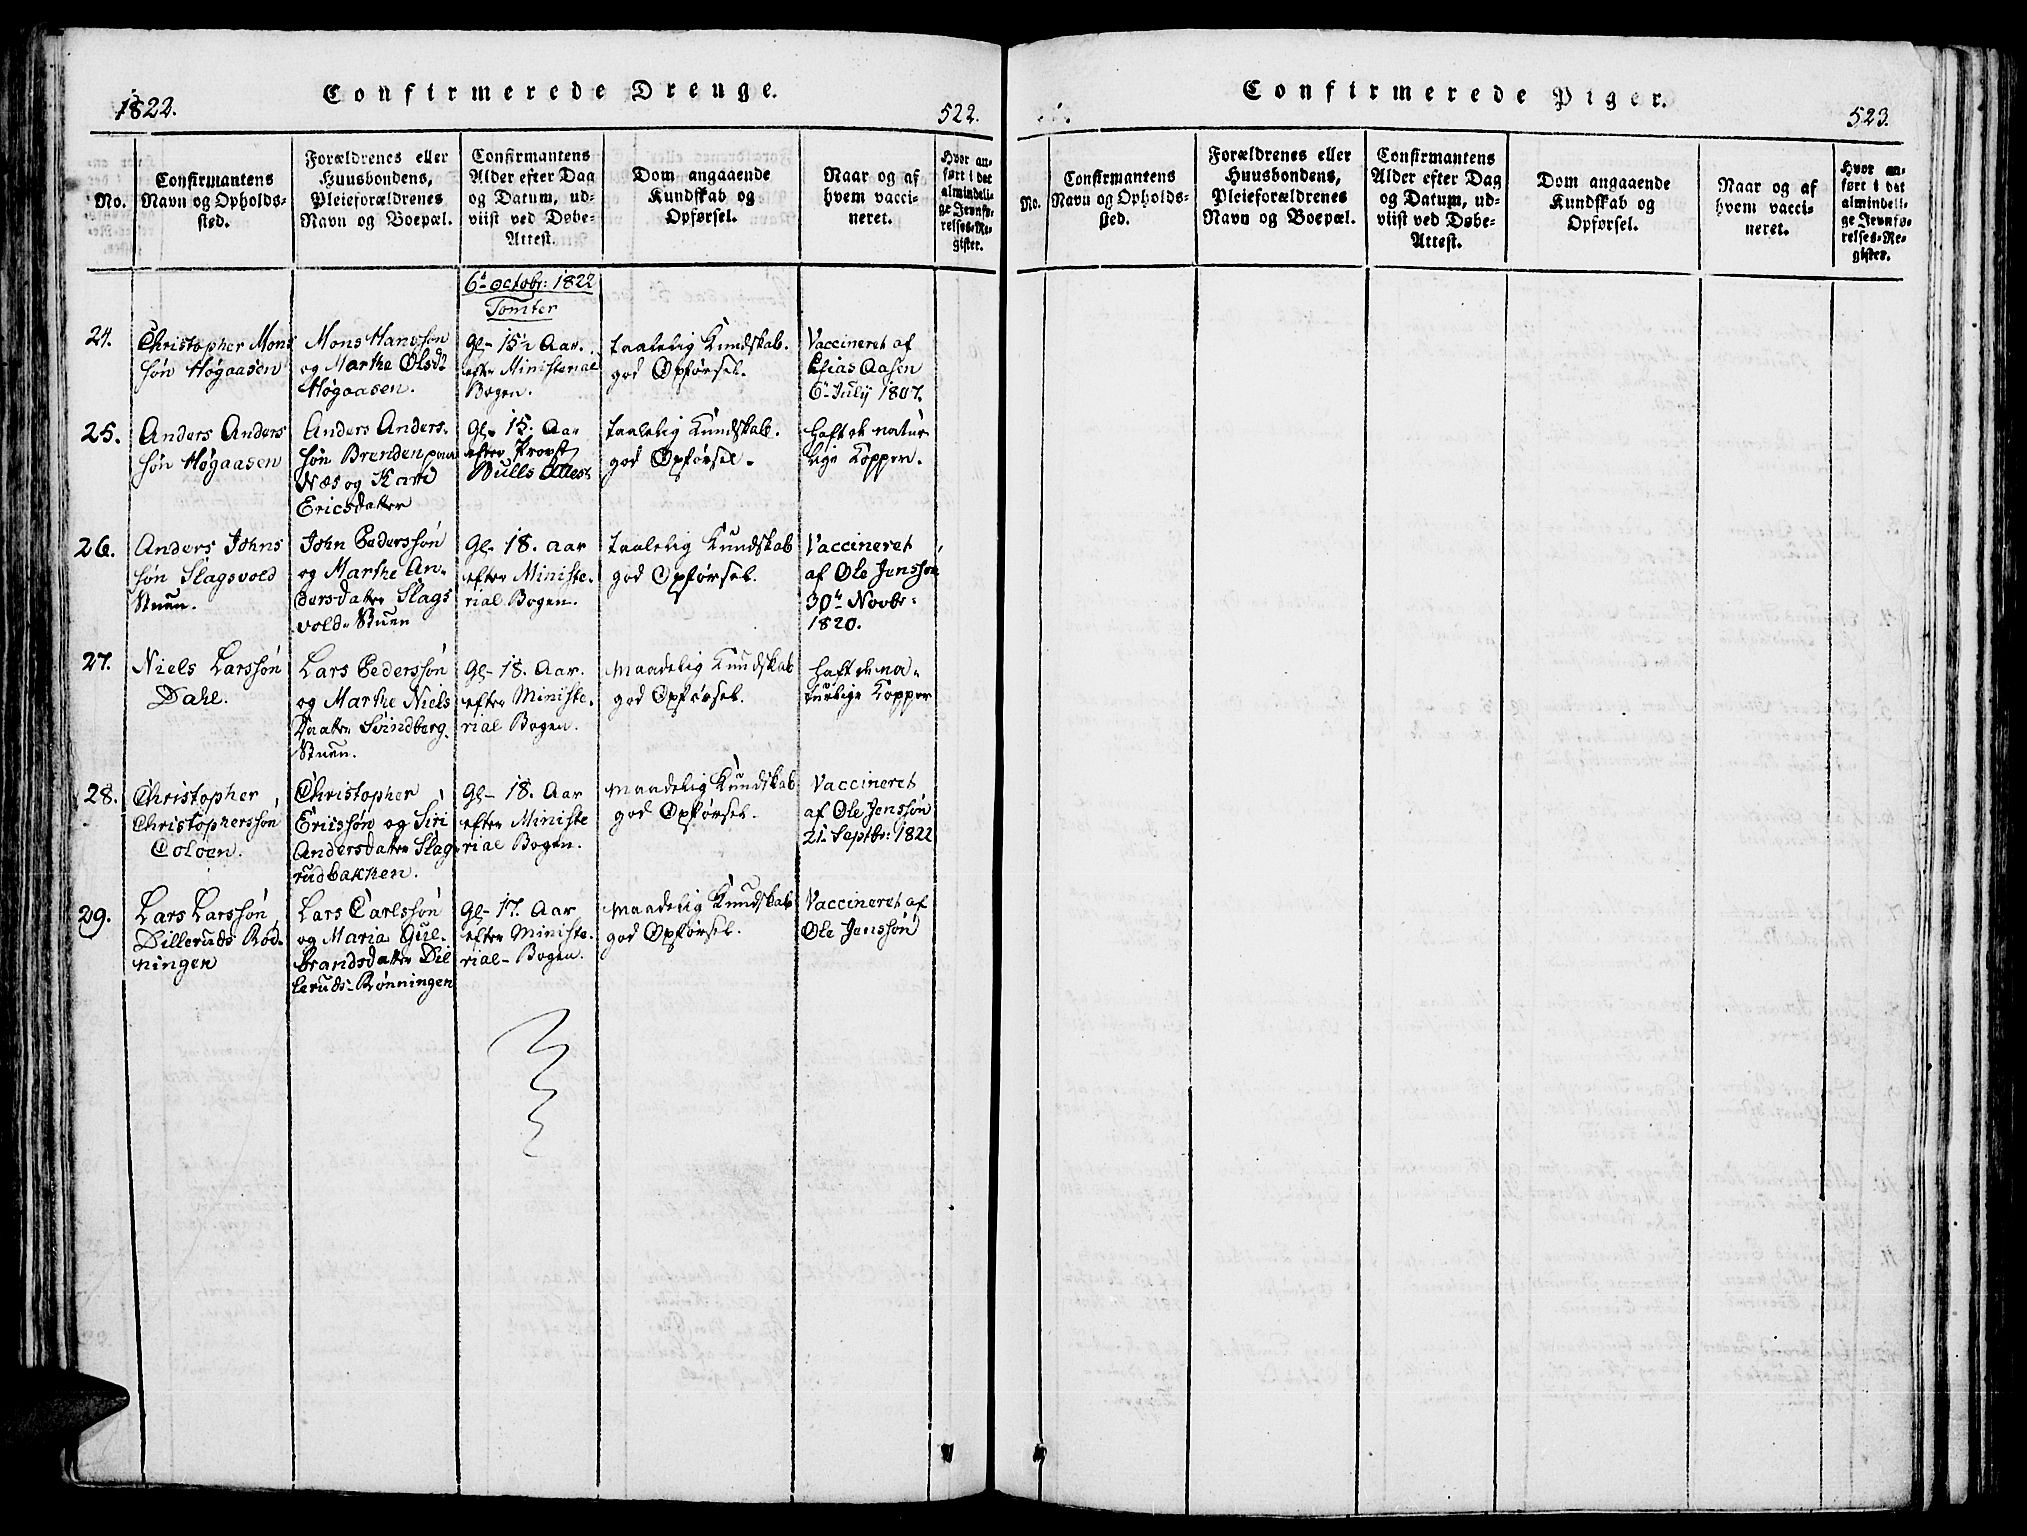 1822.
Confirmerede Drenge.
522.
No.
Confirmantens
Navn og Opholds-
sted.
Forældrenes eller
Huusbondens,
Pleieforældrenes
Navn og Boepæl.
Confirmantens
Alder efter Dag
og Datum, ud-
viist ved Døbe-
Attest.
Dom angaaende
Kundskab og
Opførsel.
Naar og af
hvem vacci-
neret.
Hvor an-
ført i det
almindeli-
ge Jevnfø-
relses-Re-
gister.
6te octobr: 1822
Tomter
24.
Christopher Mons
søn Høgaasen
Mons Hanssøn
og Marthe Olsdr
Høgaasen.
Gl- 15½ Aar.
efter Ministerial
Bogen.
taalelig Kundskab.
god Opførsel.
Vaccineret af
Elias Aasen
6te July 1807.
25.
Anders Anders
søn Høgaasen
Anders Anders-
søn Brenden
Næs og Kari
Ericsdatter
Gl. 15. Aar
efter Provst
Bulls Attest
taalelig Kundskab.
god Opførsel.
haft de natur
lige Kopper.
26.
Anders Johns
søn Slagsvold
Stuen.
John Pederssøn
og Marthe An-
dersdatter Slags
vold-Stuen
Gl- 18. aar
efter Ministe-
rial Bogen.
taalelig Kundskab
god Opførsel.
Vaccineret
af Ole Jenssøn
30te Novbr:
1820.
27.
Niels Larssøn
Dahl.
Lars Pederssøn
og Marthe Niels
Daatter Svindberg-
Stuen.
Gl- 18. Aar.
efter Ministe-
rial Bogen.
Maadelig Kundskab
god Opførsel.
haft de na-
turlige Kopper
28.
Christopher
Christopherssøn
Coloen.
Christopher
Ericssøn og Siri
Andersdatter Slag-
rudbakken.
Gl- 18. Aar
efter Ministe
rial Bogen.
Maadelig Kundskab
god Opførsel.
Vaccineret
af Ole Jenssøn
21. Septbr: 1822
29.
Lars Larssøn
Dilleruds Røn-
ningen
Lars Carlssøn
og Maria Gul-
brandsdatter Dil
leruds-Rønningen
Gl- 17. Aar
efter Ministe-
rial-Bogen.
Maadelig Kundskab
god Opførsel.
Vaccineret af
Ole Jenssøn
Confirmerede Piger.
523.
No.
Confirmantens
Navn og Opholds-
sted.
Forældrenes eller
Huusbondens,
Pleieforældrenes
Navn og Boepæl.
Confirmantens
Alder efter Dag
og Datum, ud-
viist ved Døbe-
Attest.
Dom angaaende
Kundskab og
Opførsel.
Naar og af
hvem vacci-
neret.
Hvor an-
ført i det
almindeli-
ge Jevnfø-
relses-Re-
gister.